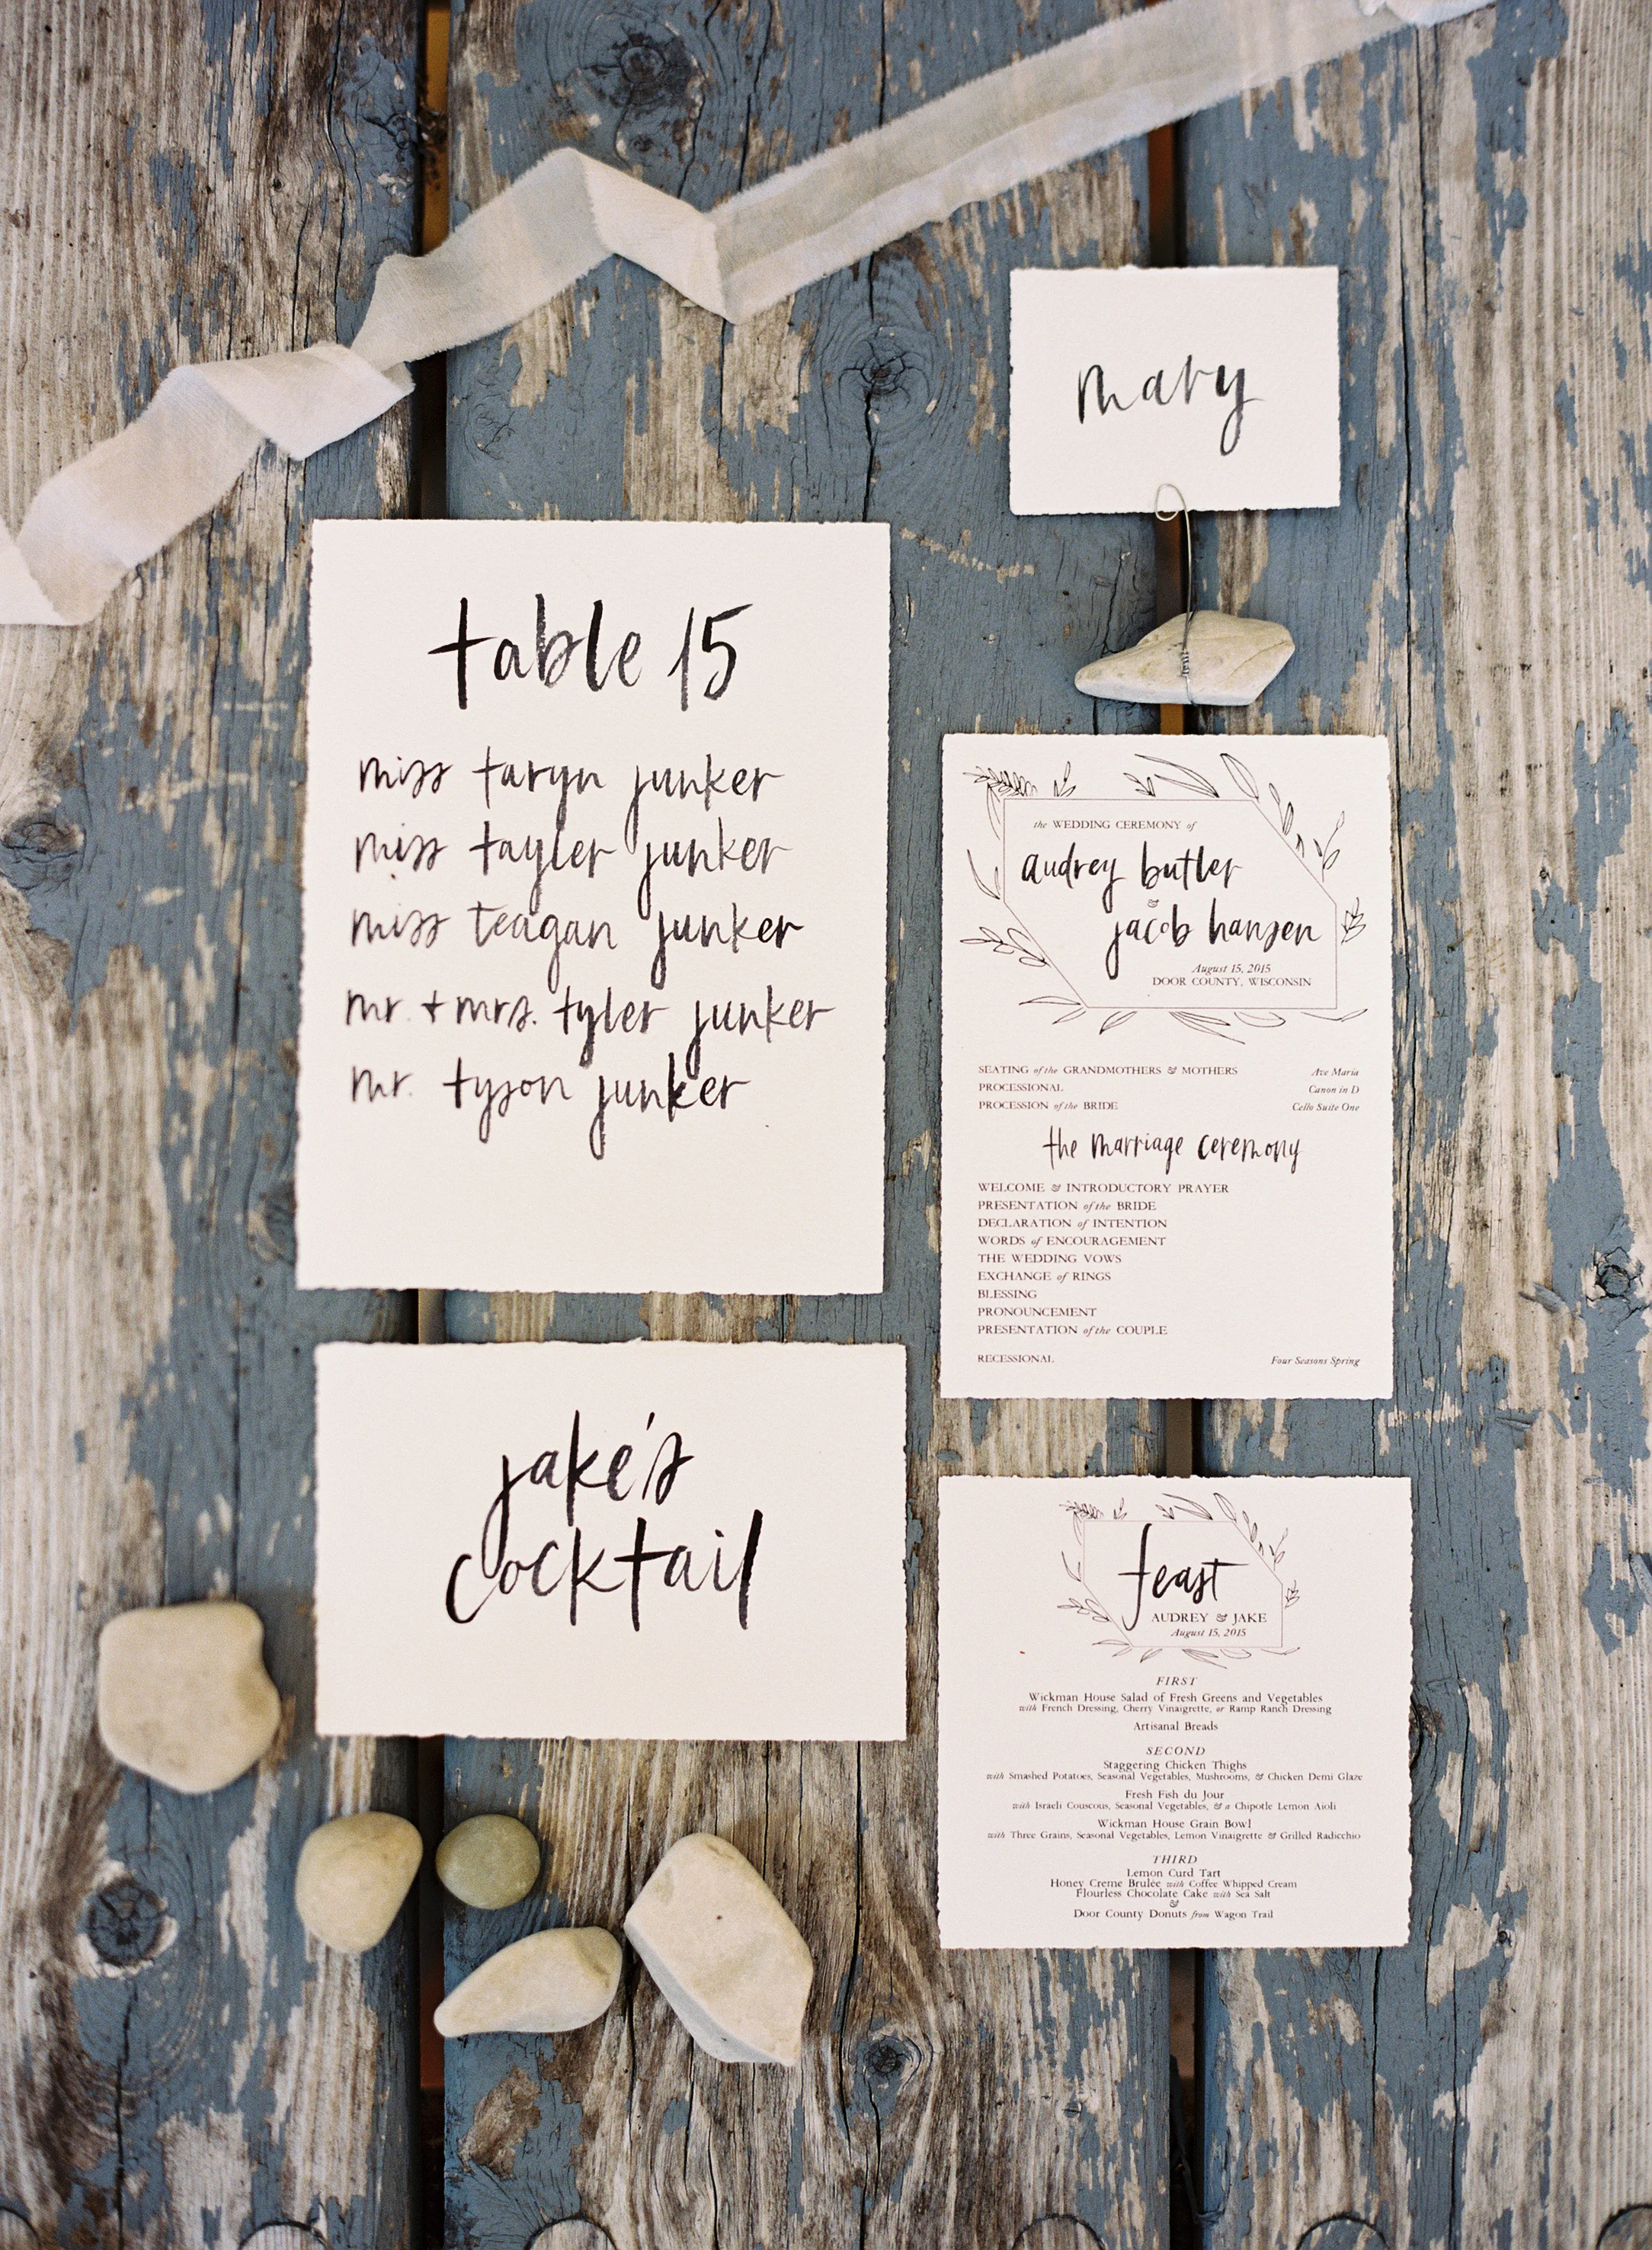 mary
table 15
miss taryn junker
miss tayler junker
miss teagan junker
mr. + mrs. tyler junker
mr. tyson junker
the WEDDING CEREMONY of
audrey butler
&
jacob hansen
August 15, 2015
DOOR COUNTY, WISCONSIN
SEATING of the GRANDMOTHERS & MOTHERS Ave Maria
PROCESSIONAL Canon in D
PROCESSION of the BRIDE Cello Suite One
the marriage ceremony
WELCOME & INTRODUCTORY PRAYER
PRESENTATION of the BRIDE
DECLARATION of INTENTION
WORDS of ENCOURAGEMENT
THE WEDDING VOWS
EXCHANGE of RINGS
BLESSING
PRONOUNCEMENT
PRESENTATION of the COUPLE
RECESSIONAL Four Seasons Spring
jake's
cocktail
feast
AUDREY & JAKE
August 15, 2015
FIRST
Wickman House Salad of Fresh Greens and Vegetables
with French Dressing, Cherry Vinaigrette, or Ramp Ranch Dressing
Artisanal Breads
SECOND
Staggering Chicken Thighs
with Smashed Potatoes, Seasonal Vegetables, Mushrooms, & Chicken Demi Glaze
Fresh Fish du Jour
with Israeli Couscous, Seasonal Vegetables, & a Chipotle Lemon Aioli
Wickman House Grain Bowl
with Three Grains, Seasonal Vegetables, Lemon Vinaigrette & Grilled Radicchio
THIRD
Lemon Curd Tart
Honey Creme Brulée with Coffee Whipped Cream
Flourless Chocolate Cake with Sea Salt
&
Door County Donuts from Wagon Trail